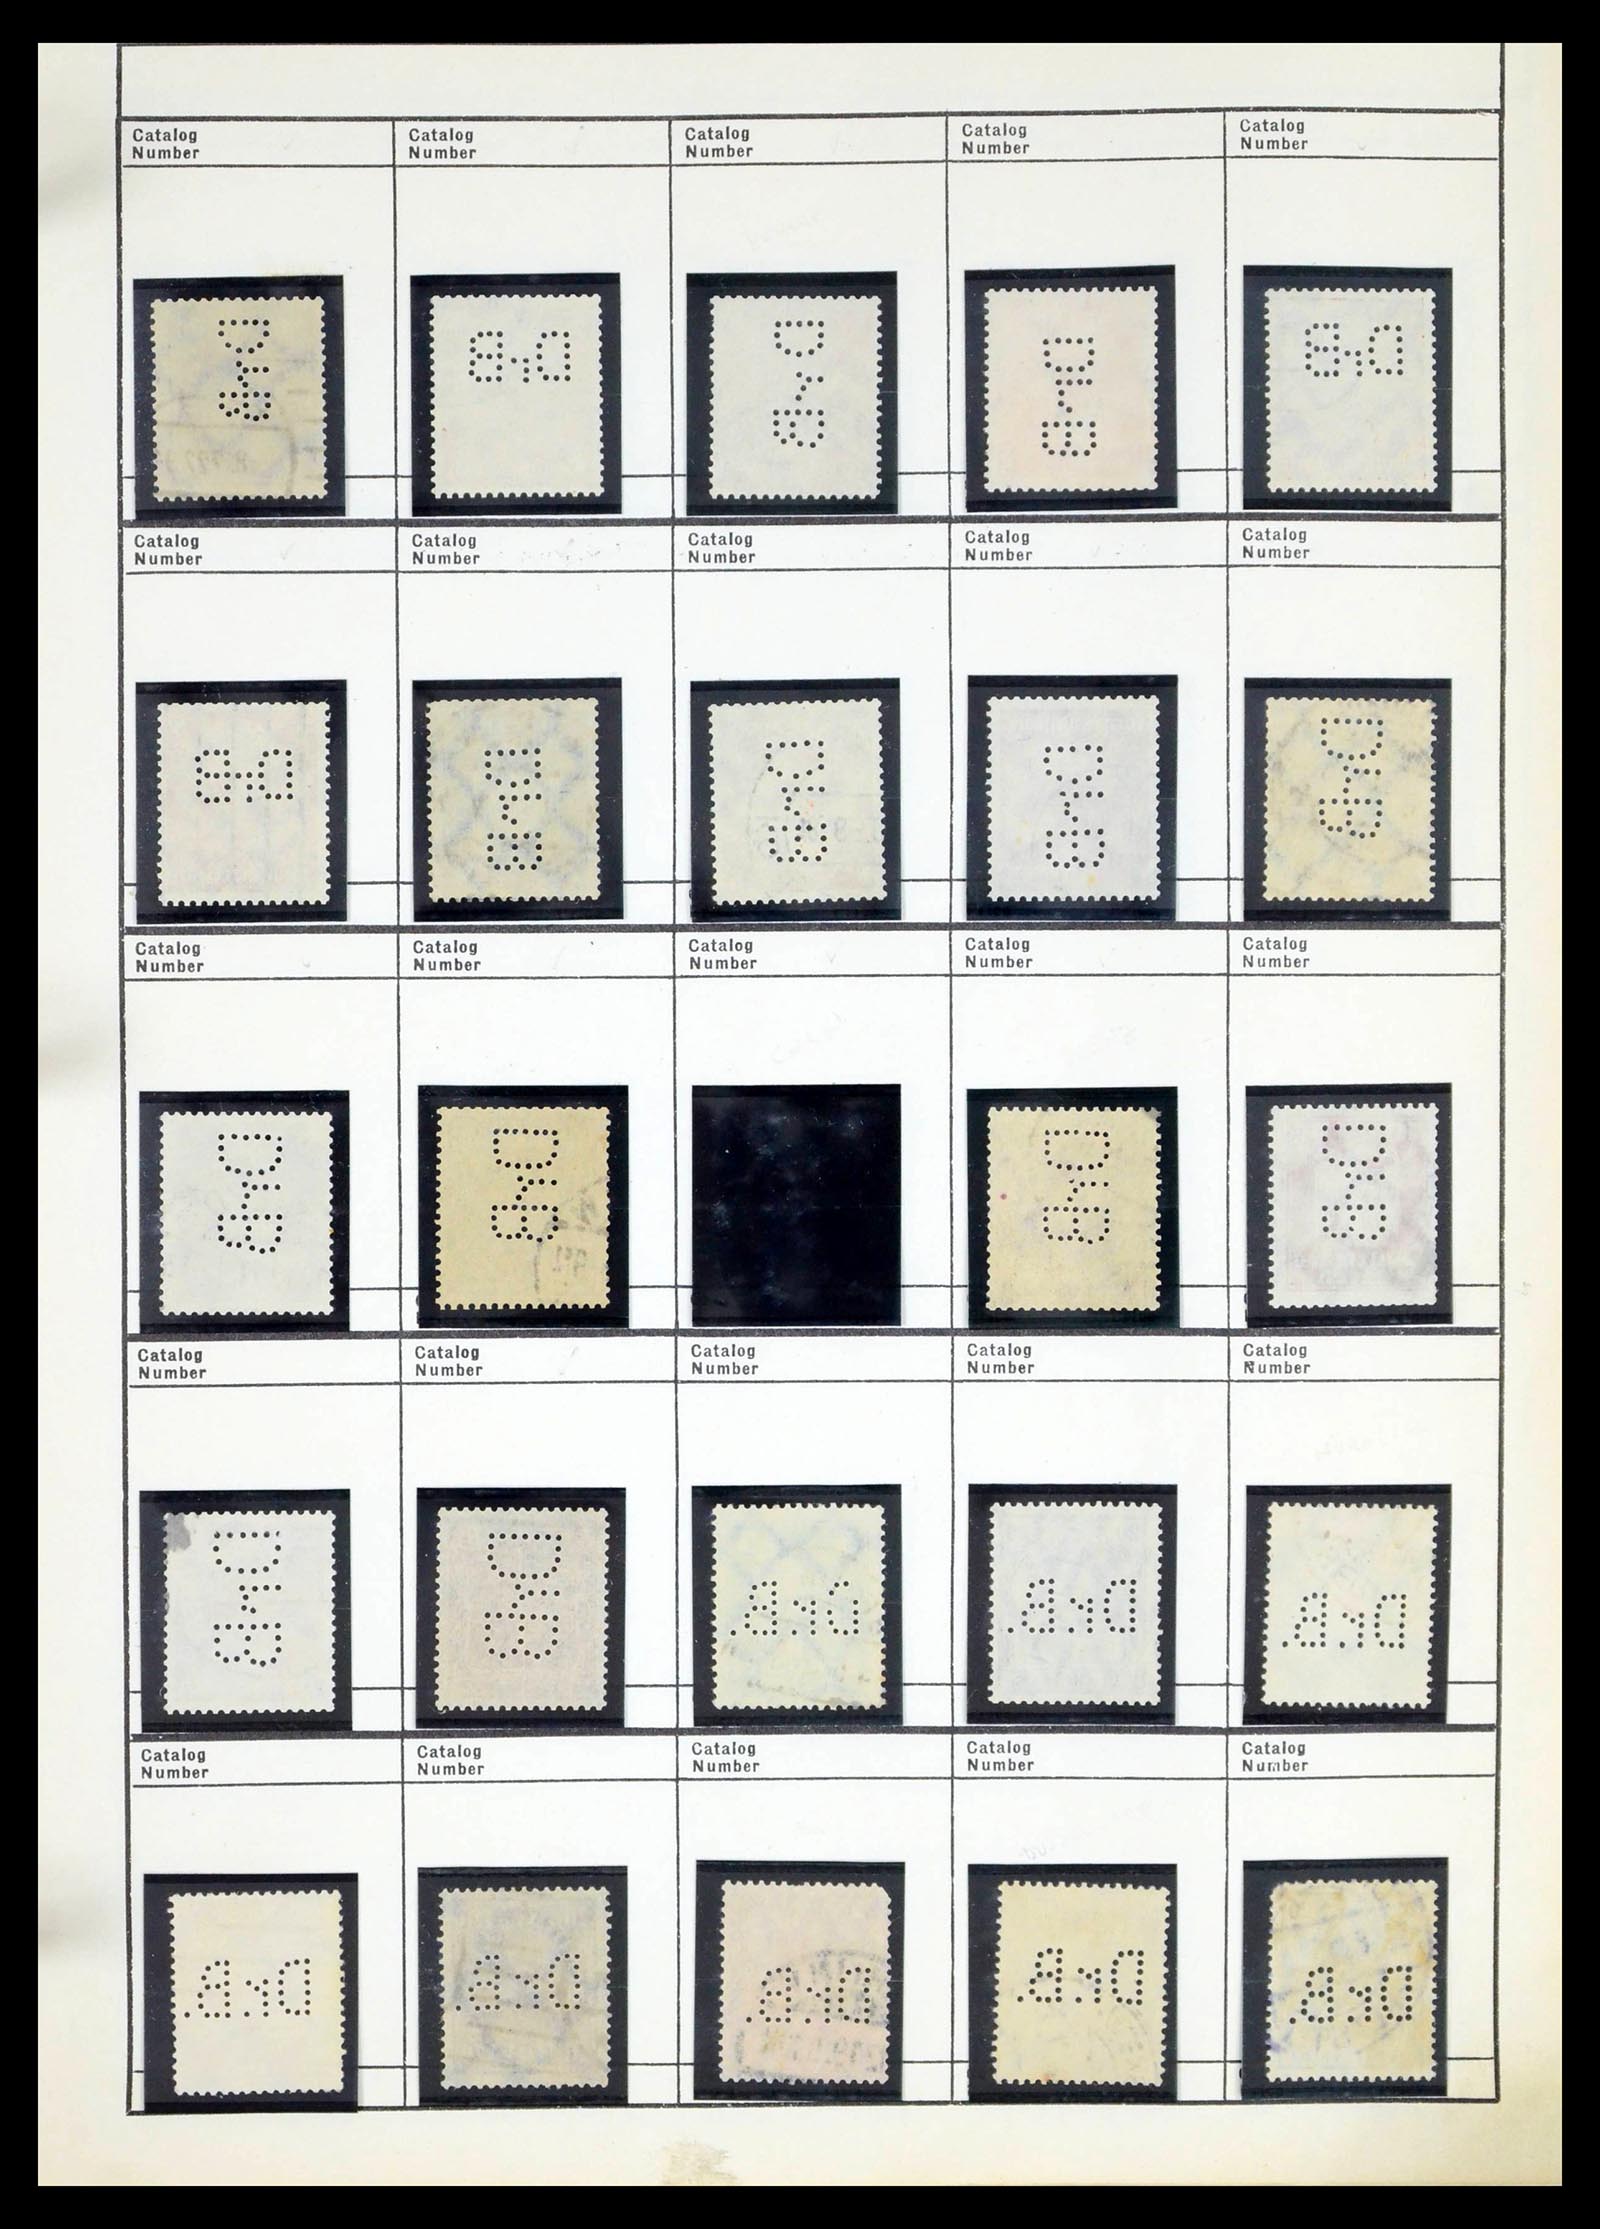 Catalog
Number
Catalog
Number
Catalog
Number
Catalog
Number
Catalog
Number
DrB
DrB
DrB
DrB
DrB
Catalog
Number
Catalog
Number
Catalog
Number
Catalog
Number
Catalog
Number
DrB
DrB
DrB
DrB
DrB
Catalog
Number
Catalog
Number
Catalog
Number
Catalog
Number
Catalog
Number
DrB
DrB
DrB
DrB
Catalog
Number
Catalog
Number
Catalog
Number
Catalog
Number
Catalog
Number
DrB
DrB
Dr.B.
Dr.B.
Dr.B.
Catalog
Number
Catalog
Number
Catalog
Number
Catalog
Number
Catalog
Number
Dr.B.
Dr.B.
Dr.B.
Dr.B.
Dr.B.